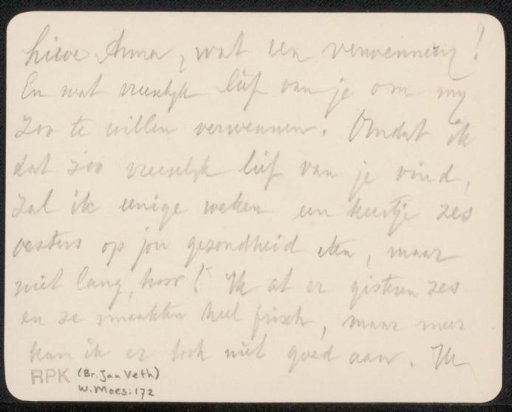 lieve Anna, wat een verwennerij!
En wat vreeselijk lief van je om my
zoo te willen verwennen. Omdat ik
dat zoo vreeselijk lief van je vind,
zal ik eenige weken een keertje zes
oesters op jou gezondheid eten, maar
niet lang, hoor! Ik at er gisteren zes
en ze smaakten heel frisch, maar meer
kan ik er toch niet goed aan. Ik
RPK (Br. Jan Veth)
W. Moes: 172